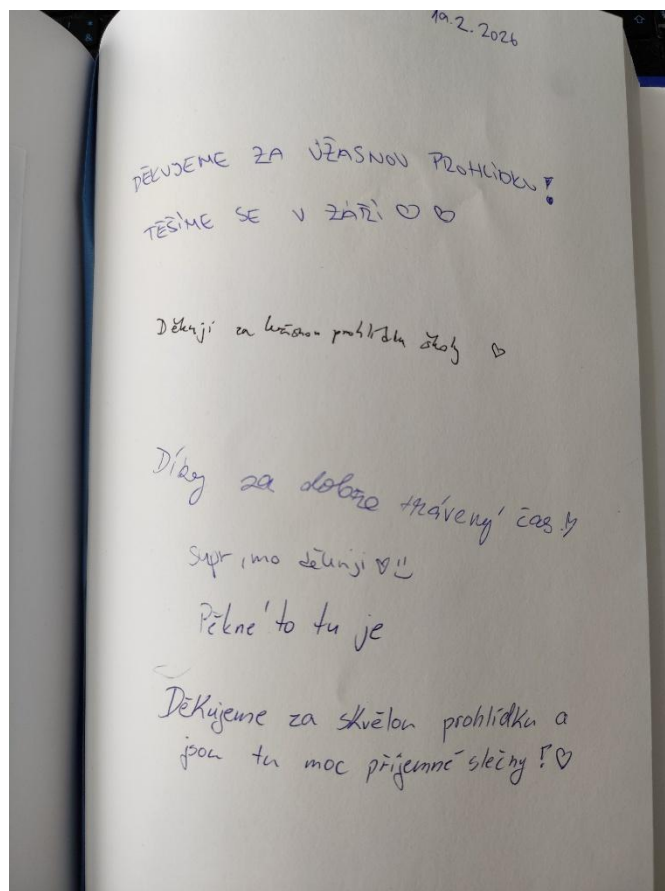 19.2.2026
DĚKUJEME ZA ÚŽASNOU PROHLÍDKU!
TĚŠÍME SE V ZÁŘÍ ♡ ♡
Děkuji za krásnou prohlídku školy ♡
Díky za dobře trávený čas
Supr, mo děkuji ♡ :)
Pěkné to tu je
Děkujeme za skvělou prohlídku a
jsou tu moc příjemné slečny! ♡